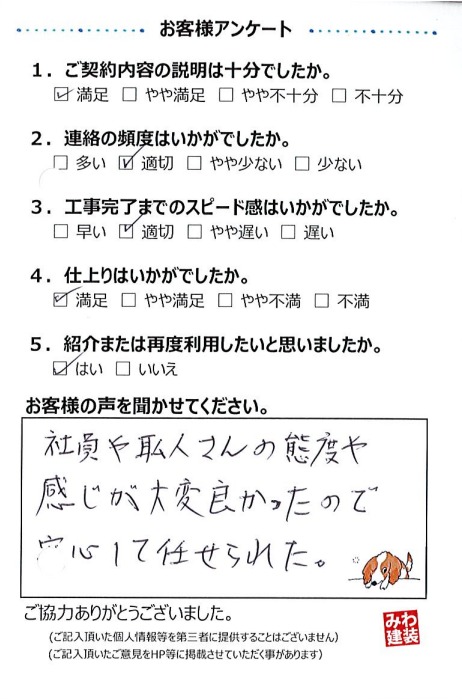 お客様アンケート
1．ご契約内容の説明は十分でしたか。
☑ 満足 □ やや満足 □ やや不十分 □ 不十分
2．連絡の頻度はいかがでしたか。
□ 多い ☑ 適切 □ やや少ない □ 少ない
3．工事完了までのスピード感はいかがでしたか。
□ 早い ☑ 適切 □ やや遅い □ 遅い
4．仕上りはいかがでしたか。
☑ 満足 □ やや満足 □ やや不満 □ 不満
5．紹介または再度利用したいと思いましたか。
☑ はい □ いいえ
お客様の声を聞かせてください。
社員や職人さんの態度や
感じが大変良かったので
安心して任せられた。
ご協力ありがとうございました。
(ご記入頂いた個人情報等を第三者に提供することはございません)
(ご記入頂いたご意見をHP等に掲載させていただく事があります)
みわ
建装